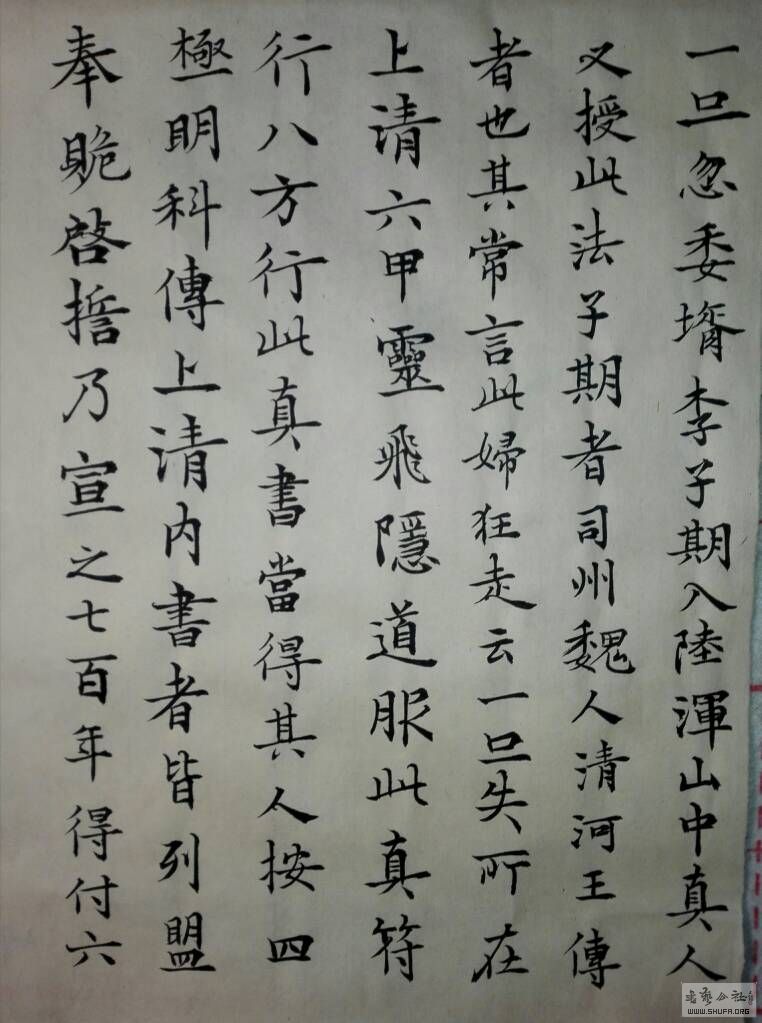 一旦忽委壻李子期入陸渾山中真人
又授此法子期者司州魏人清河王傳
者也其常言此婦狂走云一旦失所在
上清六甲靈飛隱道服此真符
行八方行此真書當得其人按四
極明科傳上清内書者皆列盟
奉脆啓擔乃宣之七百年得付六
WWW.SHUFA.ORG